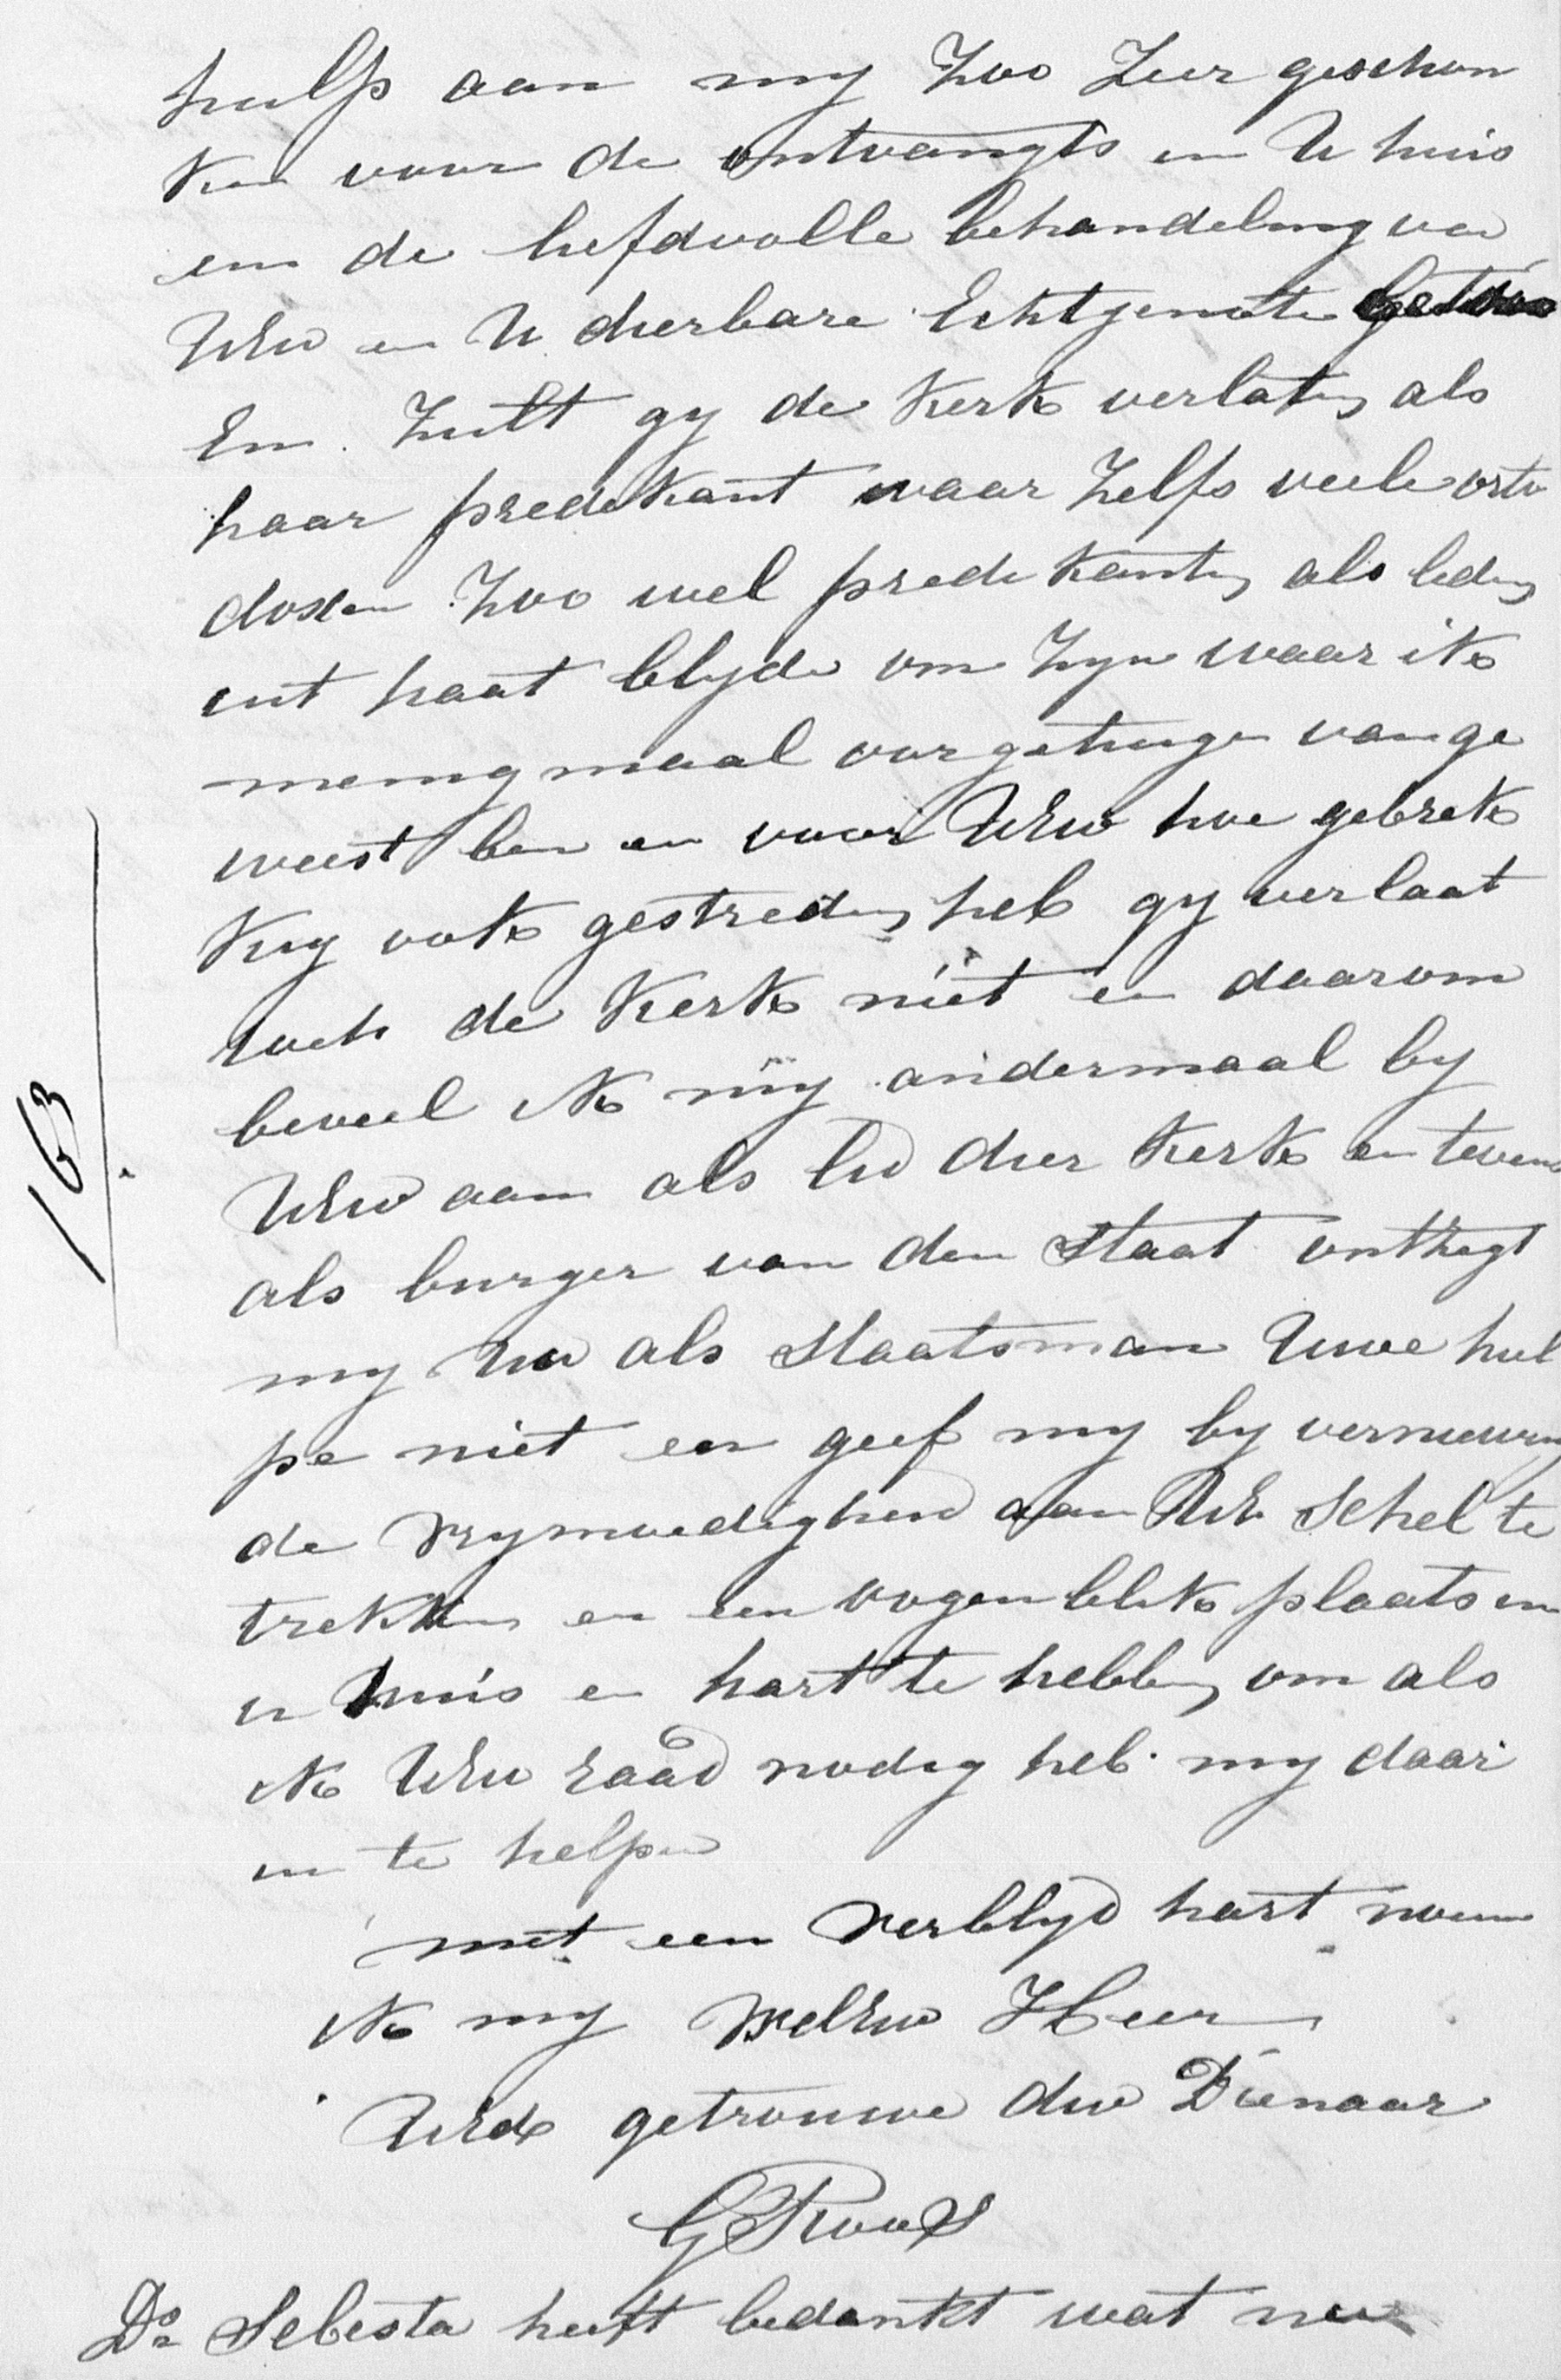 hulp aan my zoo zeer geschon
ken voor de ontvangts in U huis
en de liefdvolle behandeling van
UEw en U dierbare Echtgenote
En. Zult gy de Kerk verlaten als
haar predikant waar zelfs veele orto
doxen zoo wel predikanten als leden
uit haat blyde om zyn waar ik
menigmaal oorgetuige van ge
weest ben en voor UEw hoe gebrek
kig ook gestreden heb gy verlaat
toch de Kerk niet en daarom
beveel ik my andermaal by
UEw aan als lid dier Kerk en tevens
als burger van den Staat ontzegt
my nu als Staatsman Uwe hul
pe niet en geef my by vernieuwing
de vrymoedigheid aan UE Schel te
trekken en een oogenblik plaats in
u huis en hart te hebben om als
ik UEw raad nodig heb my daar
in te helpen
met een verblyd hart noem
ik my WelEw Heer
UEd getrouwe dw Dienaar
G Roos
Ds Sebesta heeft bedankt wat nu
163